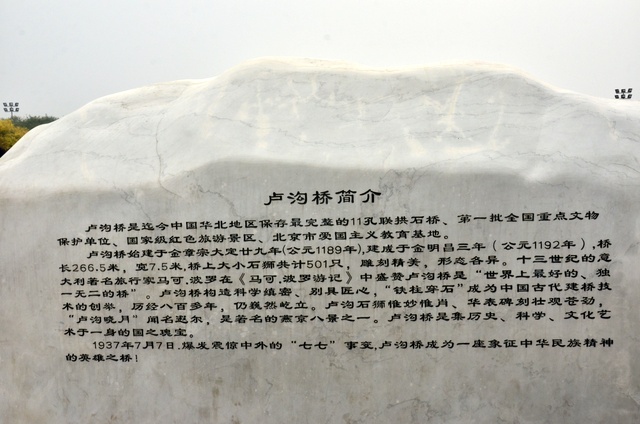 卢沟桥简介
卢沟桥是迄今中国华北地区保存最完整的11孔联拱石桥、第一批全国重点文物
保护单位、国家级红色旅游景区、北京市爱国主义教育基地。
卢沟桥始建于金章宗大定廿九年(公元1189年),建成于金明昌三年（公元1192年）,桥
长266.5米，宽7.5米,桥上大小石狮共计501只，雕刻精美，形态各异。十三世纪的意
大利著名旅行家马可.波罗在《马可.波罗游记》中盛赞卢沟桥是“世界上最好的、独
一无二的桥”。卢沟桥构造科学缜密、别具匠心，“铁柱穿石”成为中国古代建桥技
术的创举，历经八百多年，仍巍然屹立。卢沟石狮惟妙惟肖、华表碑刻壮观苍劲，
“卢沟晓月”闻名遐尔，是著名的燕京八景之一。卢沟桥是集历史、科学、文化艺
术于一身的国之瑰宝。
1937年7月7日.爆发震惊中外的“七七”事变,卢沟桥成为一座象征中华民族精神
的英雄之桥！